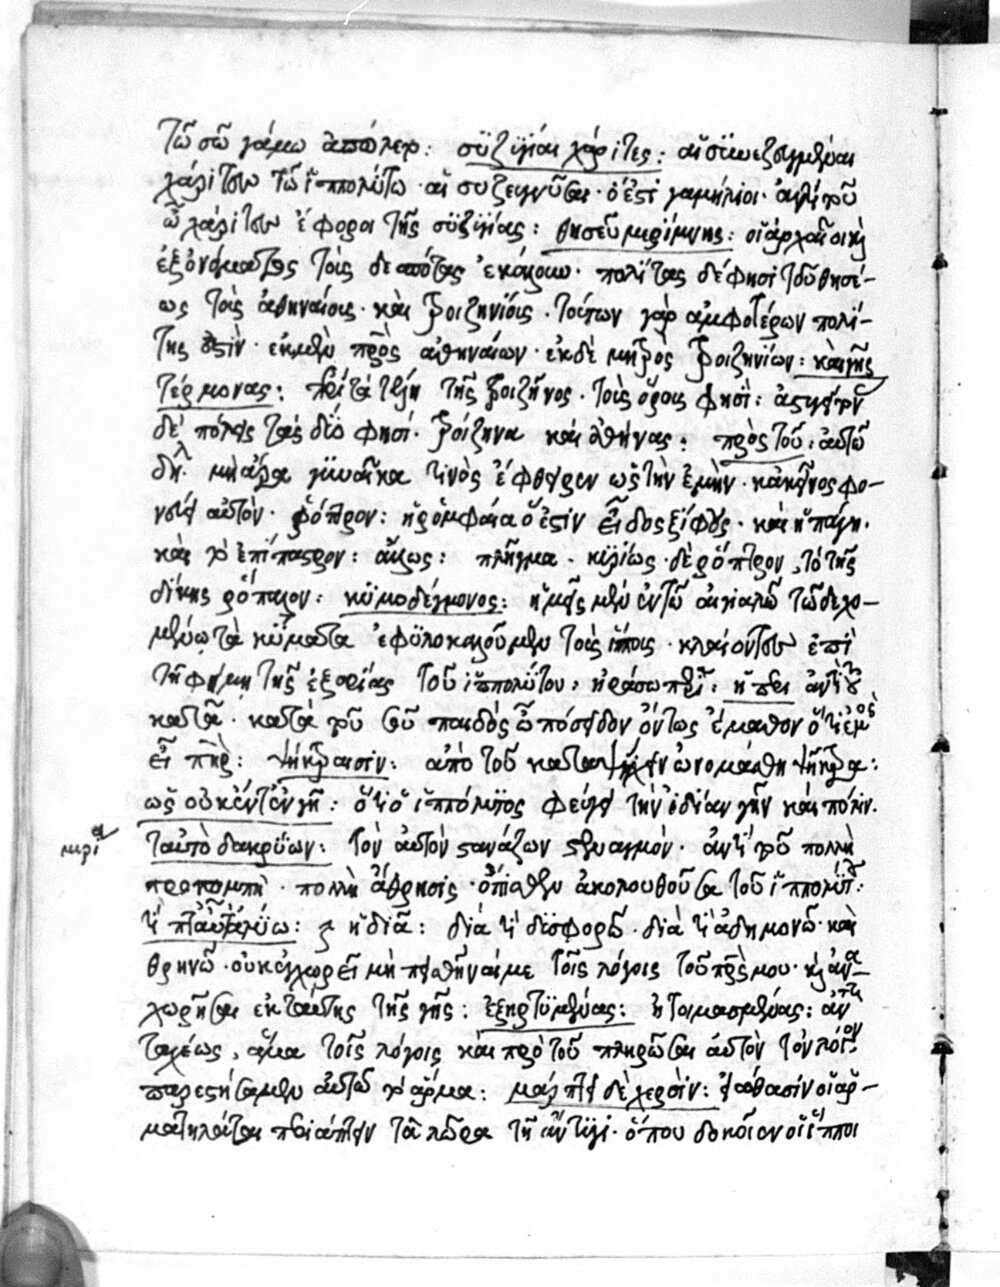 τῶ σῶ γάμω ἀπώλεσ: συζύγιαι χάριτες: αἵ συνεζευγμέναι
χάριτων τῶ ἱππολύτω· αἵ συζευγνῦσαι· ὅ ἐστὶ γαμήλιοι· ἀντὶ τοῦ
ὦ χάριτων ἔφοροι τῆς συζυγίας: θησεῦ μερίμνης: οἱ ἀρχαῖοι καὶ
ἐξονόματος τοὺς δεσπότας ἐκάλουν· πολίτας δέ φησι τοῦ θησέ-
ως τοὺς ἀθηναίους· καὶ τροιζηνίους· τούτων γὰρ ἀμφοτέρων πολί-
της ἐστὶν· ἐκ μὲν πρὸς ἀθηναίων· ἐκ δὲ μητρὸς τροιζηνίων: καὶ γῆς
τέρμονας: περὶ τὰ τέλη τῆς τροιζῆνος· τοὺς ὅρους φησὶ: ἀστυγείτον
δὲ πόλεις τὰς δύο φησί· τροίζηνα καὶ ἀθήνας: πρὸς τοῦ: αὐτῶ
δηλ μὴ ἄρα γυναῖκα τινὸς ἔφθειρεν ὡς τὴν ἐμὴν· κἀκεῖνος φο-
νεύει αὐτὸν· ῥόπτρον: ἡ ῥομφαία ὅ ἐστὶν εἶδος ξίφους· καὶ ἡ παγη·
καὶ τὸ ἐπίπαστρον: ἄλλως: πλῆγμα· κυρίως· δὲ ῥόπτρον, τὸ τῆς
δίκης ῥόπαλον: κυμοδέγμονος: ἡμεῖς μὲν ἐν τῶ αἰγιαλῶ τῶ δεχο-
μένω τὰ κύματα ἐφυλοκαλοῦμεν τοὺς ἵππους· κλαίοντων ἐπὶ
τῆ φήμη τῆς ἐξορίας τοῦ ἱππολύτου: ἠράσω πατρί: ἤπερ ἀντὶ τοῦ
κατὰ· κατὰ τοῦ σοῦ παιδὸς ὦ πόσειδον ὄντως ἔμαθον ὅτι ἐμὸς
εἶ πατὴρ: ψήκτραισιν: ἀπὸ τοῦ καταψήχειν ὠνομάσθη ψήκτρα:
ὡς οὐκέντ ἐν γῆ: ὅτι ὁ ἱππόλυτος φεύγει τὴν ἰδίαν γῆν καὶ πόλιν·
ταὐτὸ δακρύων: τὸν αὐτὸν στενάζων στεναγμὸν· ἀντὶ τοῦ πολλὴ
προπομπὴ· πολλὴ ἄθροισις· ὄπισθεν ἀκολουθοῦσα τοῦ ἱππολύτ:
τί ταῦτ ἀλύω: ἢ διὰ: διὰ τί δυσφορῶ· διὰ τί ἀδημονῶ· καὶ
θρηνῶ· οὐκ ἐγχωρεῖ μὴ πεισθῆναί με τοῖς λόγοις τοῦ πρς μου· καὶ ἀνα-
χωρῆσαι ἐκ ταύτης τῆς γῆς: ἐξηρτυμένας: ἡτοιμασμένας: ἀντὶ
ταχέως, ἅμα τοῖς λόγοις καὶ πρὸ τοῦ πληρῶσαι αὐτὸν τὸν λόγον
παρεστήσαμεν αὐτῶ τὸ ἅρμα: μάρπτει δὲ χερσὶν: εἰώθασιν οἱ ἁρ-
ματηλάται περιάπτειν τὰ λῶρα τῆ ἄντυγι· ὅπου δοκοῖεν οἱ ἵπποι